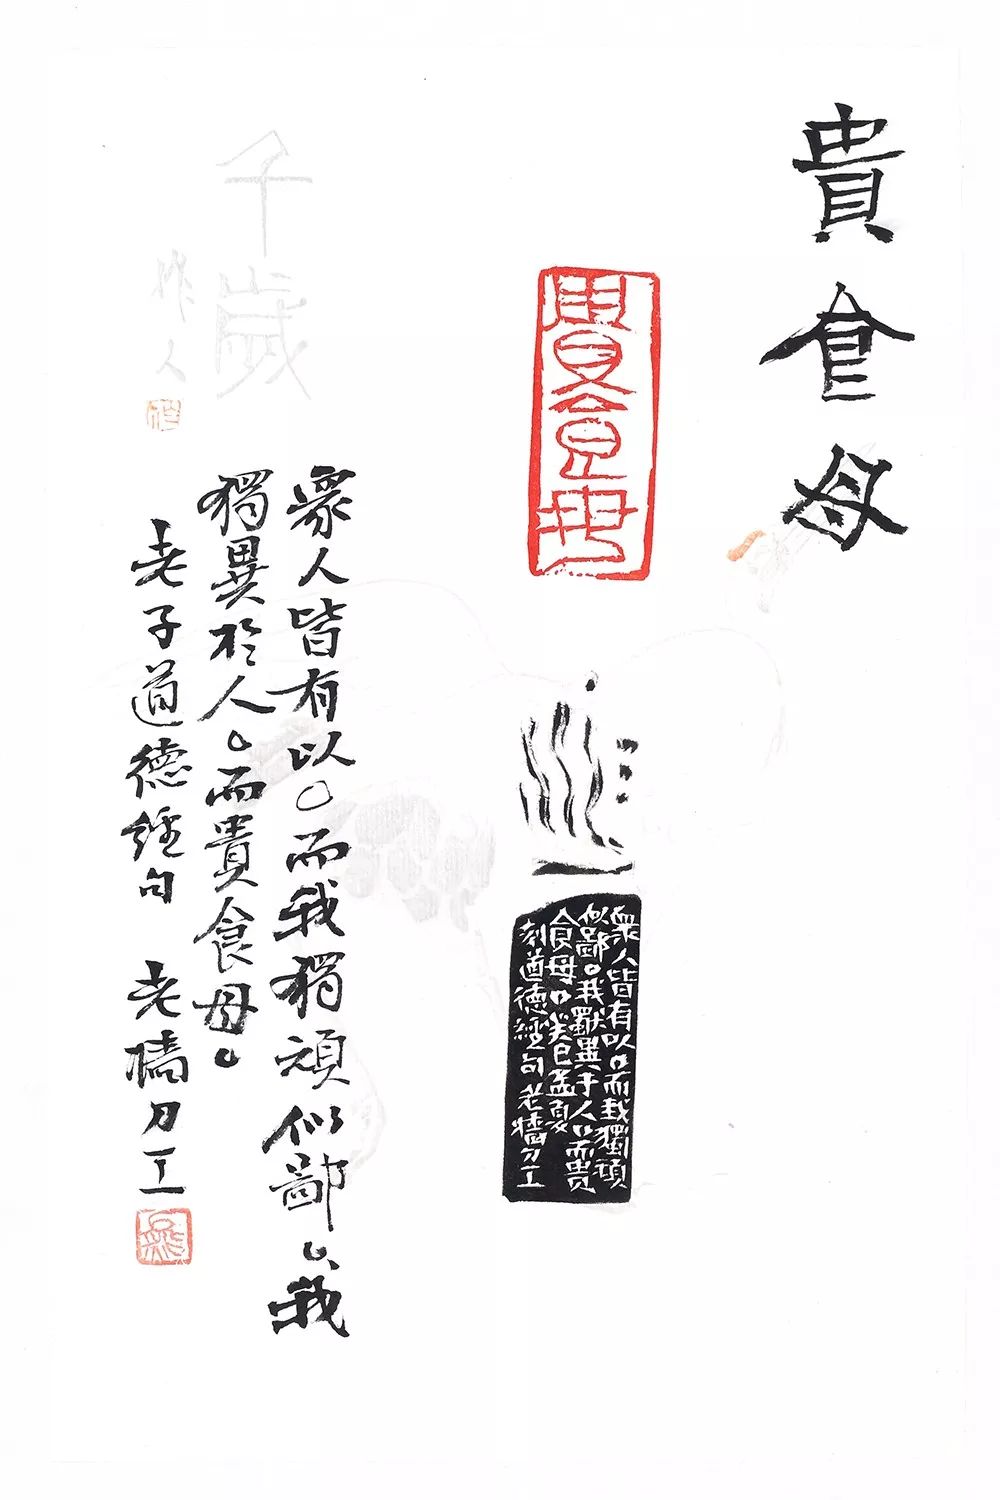 貴食母
貴食母
眾人皆有以○而我獨頑
似鄙○我獨異于人○而貴
食母○癸巳孟夏
刻道德經句老牆刀工
眾人皆有以○而我獨頑似鄙○我
獨異於人○而貴食母○
老子道德經句 老牆刀工
千歲
作人